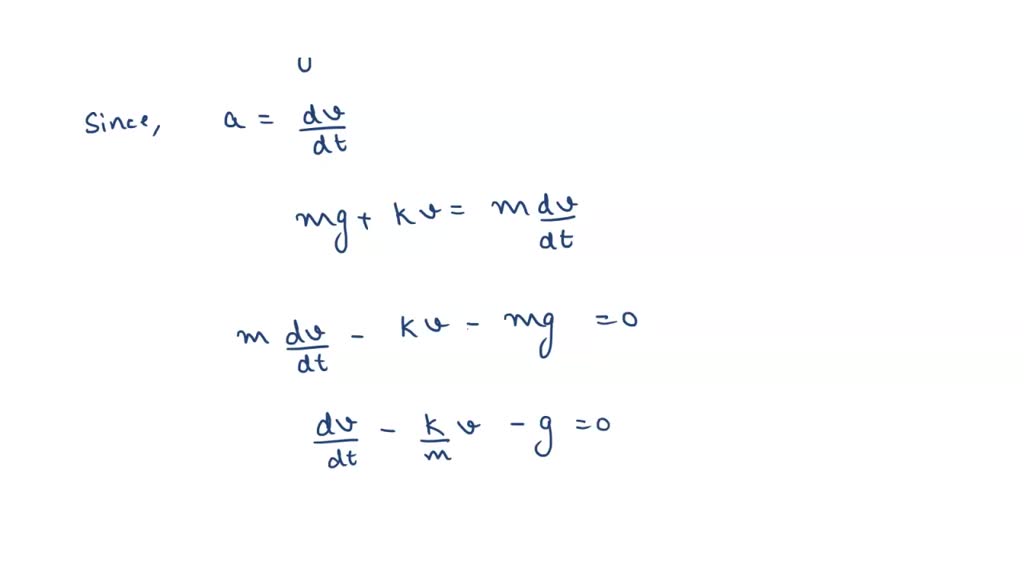 U
Since, a = dv/dt
mg + kv = m dv/dt
m dv/dt - kv - mg = 0
dv/dt - k/m v - g = 0